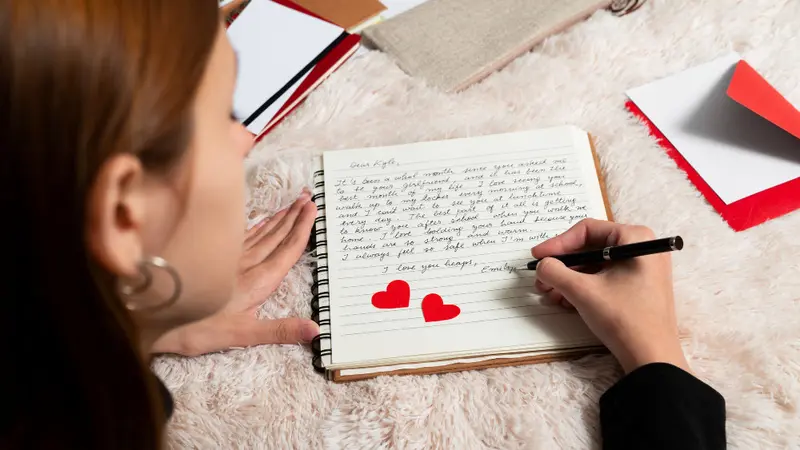 Dear Kyle,
It's been a whole month since you asked me
to be your girlfriend, and it has been the
best month of my life. I love seeing you
walk up to my locker every morning at school,
and I can't wait to see you at lunchtime
every day. The best part of it all is getting
to know you after school when you walk me
home. I love holding your hand because your
hands are so strong and warm.
I always feel so safe when I'm with
I love you heaps,
Emily